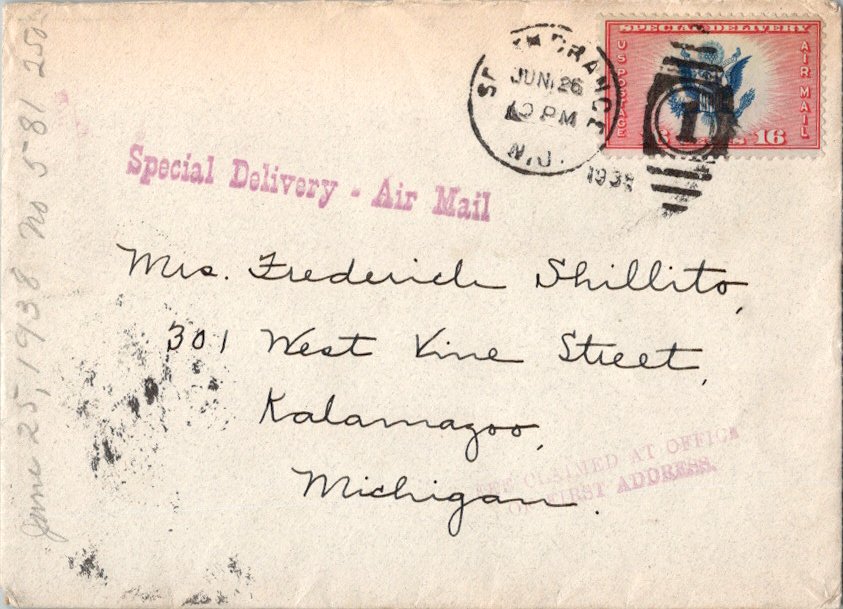 SPECIAL DELIVERY
US POSTAGE
AIR MAIL
16
1
ORANGE
JUN 26
PM
N.J.
1938
Special Delivery - Air Mail
Mrs. Frederick Shillito,
301 West Vine Street,
Kalamazoo,
Michigan.
FEE CLAIMED AT OFFICE
OF FIRST ADDRESS.
June 25, 1938 No 581 25¢